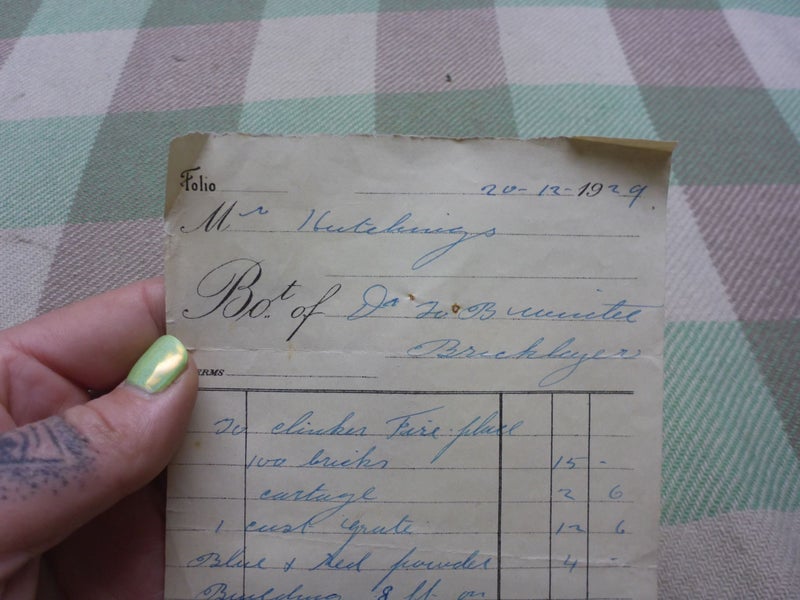 Folio 20-12-1929.
Mr Hutchings
Bo.t of Dr To B
Bricklayer
ERMS
To clinker Fire place
100 bricks 15 -
cartage 2 6
1 cast grate 12 6
Blue & Red powder 4 -
Building 8 ft on